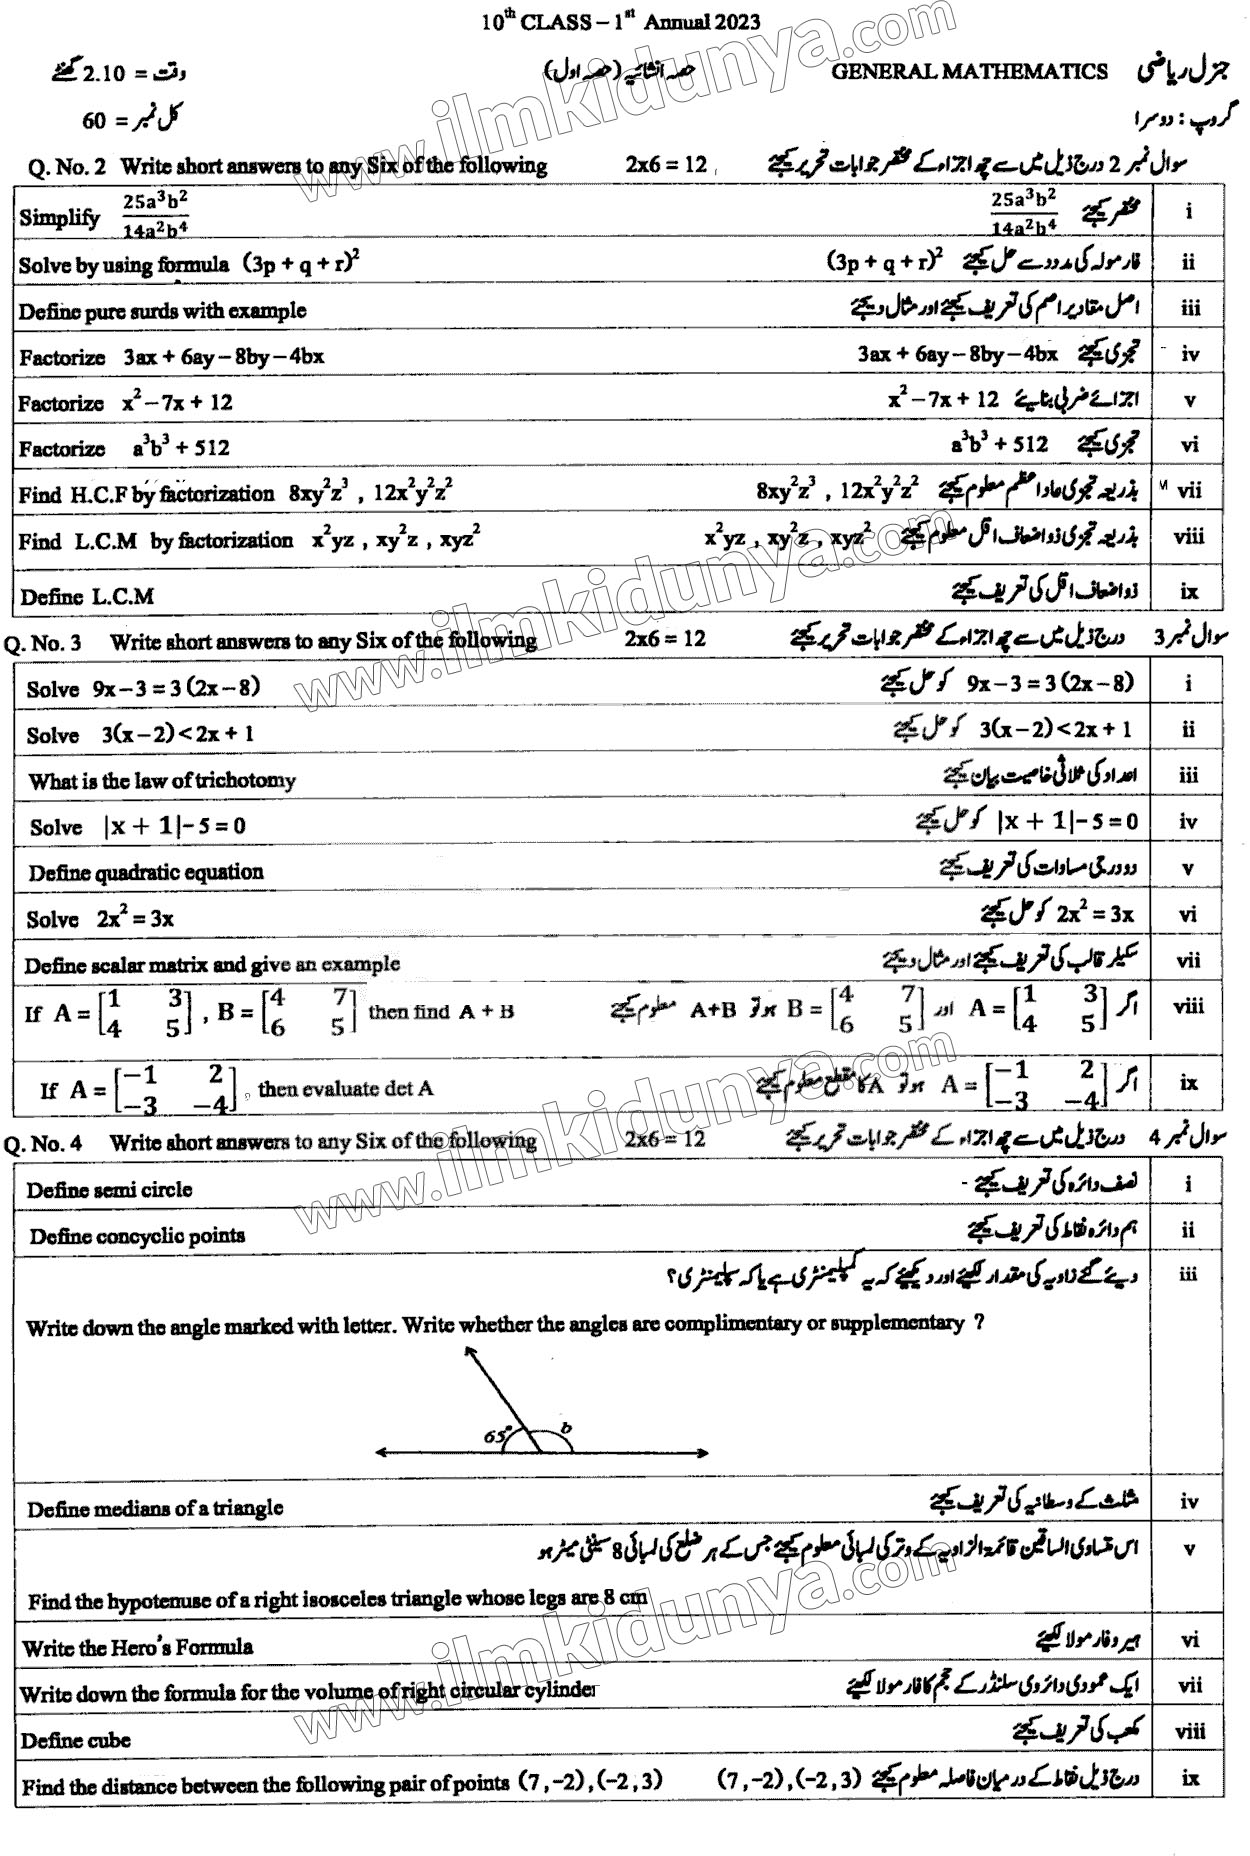 10th CLASS – 1st Annual 2023
GENERAL MATHEMATICS جنرل ریاضی
حصہ انشائیہ (حصہ اول)
وقت = 2.10 گھنٹے
گروپ : دوسرا
کل نمبر = 60
Q. No. 2 Write short answers to any Six of the following 2x6 = 12 سوال نمبر 2 درج ذیل میں سے چھ اجزاء کے مختصر جوابات تحریر کیجئے
Simplify 25a³b²/14a²b⁴ مختصر کیجئے 25a³b²/14a²b⁴ i
Solve by using formula (3p + q + r)² فارمولہ کی مدد سے حل کیجئے (3p + q + r)² ii
Define pure surds with example اصل مقادیر اصم کی تعریف کیجئے اور مثال دیجئے iii
Factorize 3ax + 6ay – 8by – 4bx تجزی کیجئے 3ax + 6ay – 8by – 4bx iv
Factorize x² – 7x + 12 اجزائے ضربی بنایئے x² – 7x + 12 v
Factorize a³b³ + 512 تجزی کیجئے a³b³ + 512 vi
Find H.C.F by factorization 8xy²z³ , 12x²y²z² بذریعہ تجزی عاد اعظم معلوم کیجئے 8xy²z³ , 12x²y²z² vii
Find L.C.M by factorization x²yz , xy²z , xyz² بذریعہ تجزی ذواضعاف اقل معلوم کیجئے x²yz , xy²z , xyz² viii
Define L.C.M ذواضعاف اقل کی تعریف کیجئے ix
Q. No. 3 Write short answers to any Six of the following 2x6 = 12 سوال نمبر 3 درج ذیل میں سے چھ اجزاء کے مختصر جوابات تحریر کیجئے
Solve 9x – 3 = 3 (2x – 8) 9x – 3 = 3 (2x – 8) کو حل کیجئے i
Solve 3(x – 2) < 2x + 1 3(x – 2) < 2x + 1 کو حل کیجئے ii
What is the law of trichotomy اعداد کی ثلاثی خاصیت بیان کیجئے iii
Solve |x + 1| – 5 = 0 |x + 1| – 5 = 0 کو حل کیجئے iv
Define quadratic equation دو درجی مساوات کی تعریف کیجئے v
Solve 2x² = 3x 2x² = 3x کو حل کیجئے vi
Define scalar matrix and give an example سکیلر قالب کی تعریف کیجئے اور مثال دیجئے vii
If A = [1 3; 4 5] , B = [4 7; 6 5] then find A + B اگر A = [1 3; 4 5] اور B = [4 7; 6 5] ہو تو A+B معلوم کیجئے viii
If A = [−1 2; −3 −4] , then evaluate det A اگر A = [−1 2; −3 −4] ہو تو A کا مقطع معلوم کیجئے ix
Q. No. 4 Write short answers to any Six of the following 2x6 = 12 سوال نمبر 4 درج ذیل میں سے چھ اجزاء کے مختصر جوابات تحریر کیجئے
Define semi circle نصف دائرہ کی تعریف کیجئے - i
Define concyclic points ہم دائرہ نقاط کی تعریف کیجئے ii
دیئے گئے زاویہ کی مقدار لکھیئے اور دیکھیئے کہ یہ کمپلیمنٹری ہے یا کہ سپلیمنٹری؟ iii
Write down the angle marked with letter. Write whether the angles are complimentary or supplementary ?
65° b
Define medians of a triangle مثلث کے وسطانیہ کی تعریف کیجئے iv
اس متساوی الساقین قائمۃ الزاویہ کے وتر کی لمبائی معلوم کیجئے جس کے ہر ضلع کی لمبائی 8 سینٹی میٹر ہو v
Find the hypotenuse of a right isosceles triangle whose legs are 8 cm
Write the Hero's Formula ہیرو فارمولا لکھیئے vi
Write down the formula for the volume of right circular cylinder ایک عمودی دائروی سلنڈر کے حجم کا فارمولا لکھیئے vii
Define cube مکعب کی تعریف کیجئے viii
Find the distance between the following pair of points (7,–2),(–2,3) درج ذیل نقاط کے درمیان فاصلہ معلوم کیجئے (7,–2),(–2,3) ix
www.ilmkidunya.com
www.ilmkidunya.com
www.ilmkidunya.com
www.ilmkidunya.com